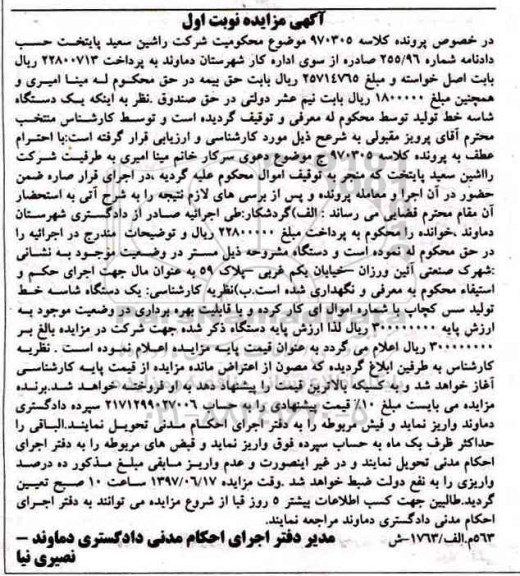 آگهی مزایده نوبت اول
در خصوص پرونده کلاسه ۹۷۰۳۰۵ موضوع محکومیت شرکت راشین سعید پایتخت حسب
دادنامه شماره ۲۵۵/۹۶ صادره از سوی اداره کار شهرستان دماوند به پرداخت ۲۲۸۰۰۷۱۳ ریال
بابت اصل خواسته و مبلغ ۲۵۷۱۴۷۶۵ ریال بابت حق بیمه در حق محکوم له مینا امیری و
همچنین مبلغ ۱۸۰۰۰۰۰ ریال بابت نیم عشر دولتی در حق صندوق .نظر به اینکه یک دستگاه
شاسه خط تولید توسط محکوم له معرفی و توقیف گردیده است و توسط کارشناس منتخب
محترم آقای پرویز مقبولی به شرعح ذیل مورد کارشناسی و ارزیابی قرار گرفته است:با احترام
عطف به پرونده کلاسه ۹۷۰۳۰۵ج موضوع دعوی سرکار خانم مینا امیری به طرفیت شرکت
رااشین سعید پایتخت که منجر به توقیف اموال محکوم علیه گردیه ،در اجرای قرار صاره ضمن
حضور در آن اجرا و معامله پرونده و پس از برسی های لازم نتیجه را به شرح آتی به استحضار
آن مقام محترم قضایی می رساند : الف)گردشکار:طی اجرائیه صادر از دادگستری شهرستان
دماوند ،خوانده را محکوم به پرداخت مبلغ ۲۲۸۰۰۰۰۰ ریال و توضیحات مندرج در اجرائیه را
در حق محکوم له نموده است و دستگاه مشروحه ذیل مستر در وضعیت موجود به نشانی
:شهرک صنعتی آئین ورزان –خیابان یکم غربی –پلاک ۵۹ به عنوان مال جهت اجرای حکم و
استیفاء محکوم به معرفی و نگهداری شده است.ب)نظریه کارشناسی: یک دستگاه شاسه خط
تولید سس کچاب با شماره اموال ای کار کرده و با قابلیت بهره برداری در وضعیت موجود به
ارزش پایه ۳۰۰۰۰۰۰۰۰ ریال لذا ارزش پایه دستگاه ذکر شده جهت شرکت در مزایده بالغ بر
۳۰۰۰۰۰۰۰۰ ریال اعلام می گردد به عنوان قیمت پایه مزایده اعلام نموده است . نظریه
کارشناس به طرفین ابلاغ گردیده که مصون از اعتراض مانده مزایده از قیمت پایه کارشناسی
آغاز خواهد شد و به کسیکه بالاترین قیمت را پیشنهاد دهد به او فروخته خواهد شد.برنده
مزایده می بایست مبلغ ۱۰٪ قیمت پیشنهادی را به حساب ۲۱۷۱۲۹۹۰۲۷۰۰۶ سپرده دادگستری
دماوند واریز نماید و فیش مربوطه را به دفتر اجرای احکام مدنی تحویل نمایند.الباقی را
حداکثر ظرف یک ماه به حساب سپرده فوق واریز نماید و قبض های مربوطه را به دفتر اجرای
احکام مدنی تحویل نمایند و در غیر اینصورت و عدم واریز مابقی مبلغ مذکور ده درصد
واریزی را به نفع دولت ضبط خواهد شد .وقت مزایده ۱۳۹۷/۰۶/۱۷ ساعت ۱۰ صبح تعیین
گردید.طالبین جهت کسب اطلاعات بیشتر ۵ روز قبا از شروع مزایده می توانند به دفتر اجرای
احکام مدنی دادگستری دماوند مراجعه نمایند.
۵۶۳م.الف/۱۷۶۳–ش مدیر دفتر اجرای احکام مدنی دادگستری دماوند –
نصیری نیا